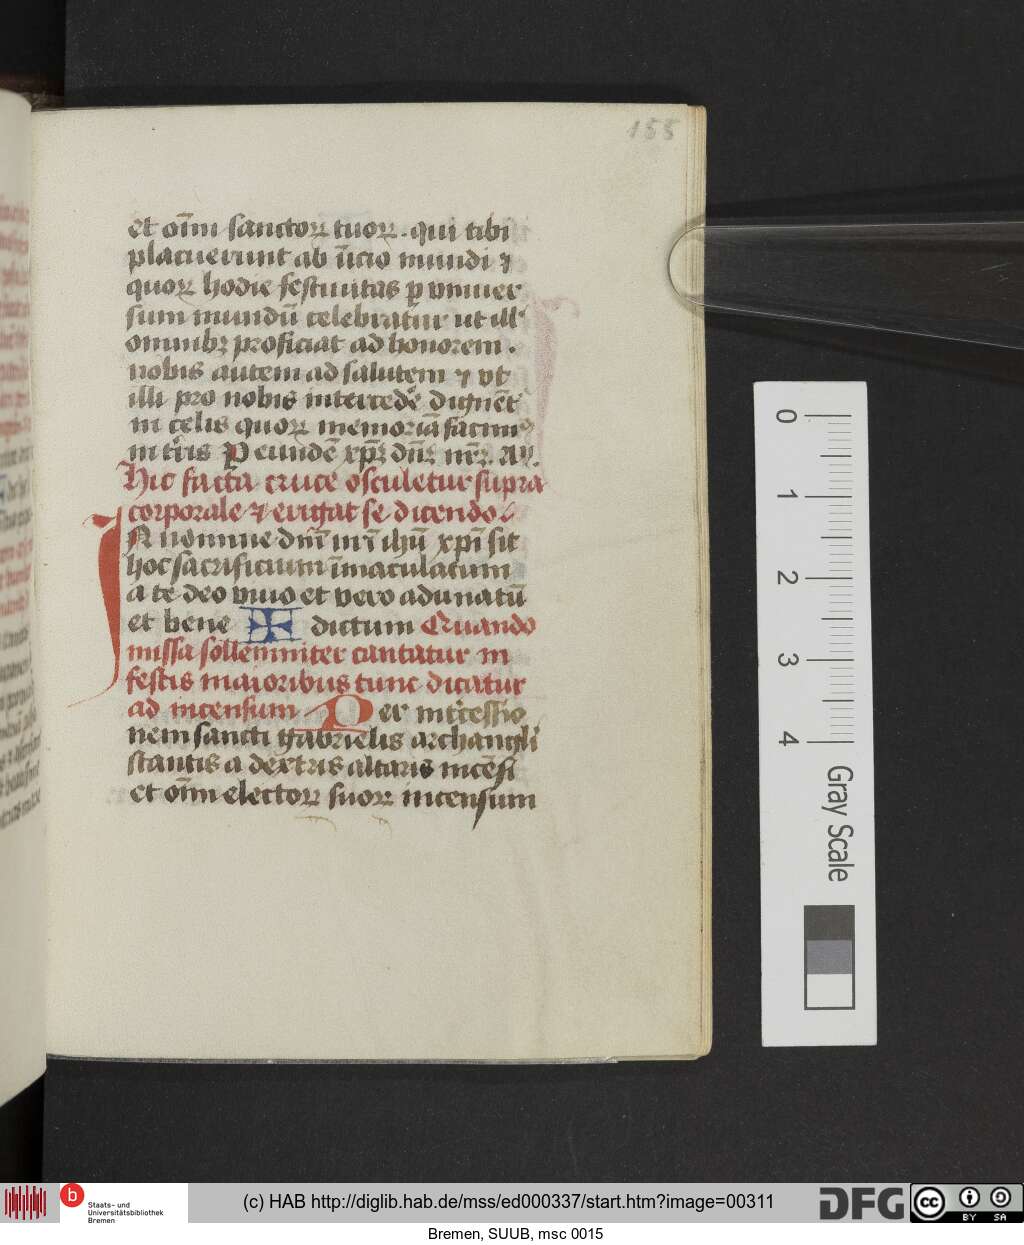 155
et om̄ sanctoꝝ tuoꝝ . qui tibi
placuerunt ab īicio mundi ⁊
quoꝝ hodie festiuitas ꝑ vniuer
sum mundū celebratur ut ill'
omnibꝫ proficiat ad honorem .
nobis autem ad salutem ⁊ vt
illi pro nobis intercede᷒ dignēt᷒
in celis quoꝝ memoriā facimꝰ
in tr̄is P eundē xp̄ꝫ dn̄ꝫ nr̄ꝫ. Am̄.
Hic facta cruce osculetur supra
corporale ⁊ erigat se dicendo
IN nomine dn̄i nr̄i ihū xp̄i sit
hoc sacrificium īmaculatum
a te deo viuo et vero adunatū
et bene ✠ dictum Quando
missa sollemniter cantatur in
festis maioribus tunc dicatur
ad incensum Per int̄cessio
nem sancti gabrielis archangli
stantis a dextris altaris incēsi
et om̄ electoꝝ suoꝝ incensum
0
1
2
3
4
Gray Scale
b Staats- und
Universitätsbibliothek
Bremen
(c) HAB http://diglib.hab.de/mss/ed000337/start.htm?image=00311
DFG
cc BY SA
Bremen, SUUB, msc 0015